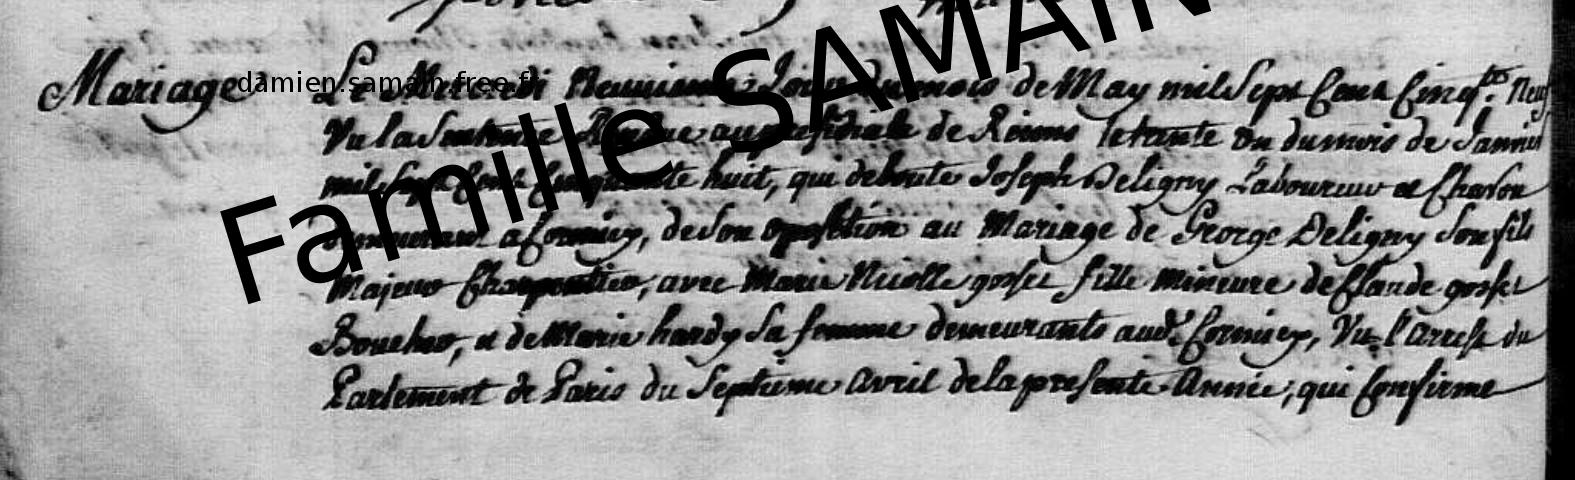 Mariage Le Mercredi Neuvieme Jour du mois de May mil Sept Cent Cinq.te Neuf
damien.samain.free.fr
Famille SAMAIN
Vu la Sentence Rendue au presidiale de Reims le trente un du mois de Janvier
mil Sept Cent Cinquante huit, qui deboute Joseph Deligny Laboureur et Charon
demeurant a Cormicy, de Son oposition au Mariage de George Deligny Son fils
Majeur Charpentier, avec Marie Nicolle gosset fille mineure de Claude gosset
Boucher, et de Marie hardy Sa femme demeurants aud.t Cormicy, Vu l'arrest du
Parlement de Paris du Septieme Avril de la presente Année, qui Confirme